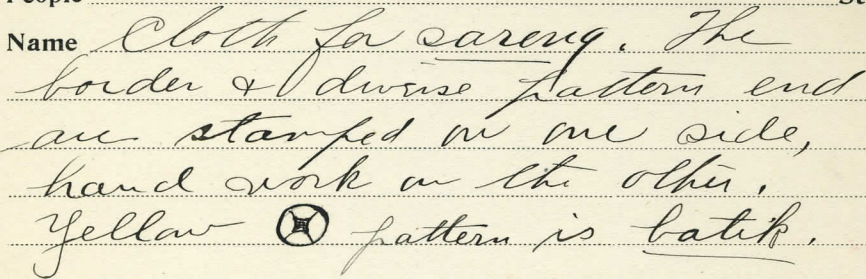 People St
Name Cloth for sareng. The
border & diverse pattern end
are stamped on one side,
hand work on the other.
Yellow pattern is batik.